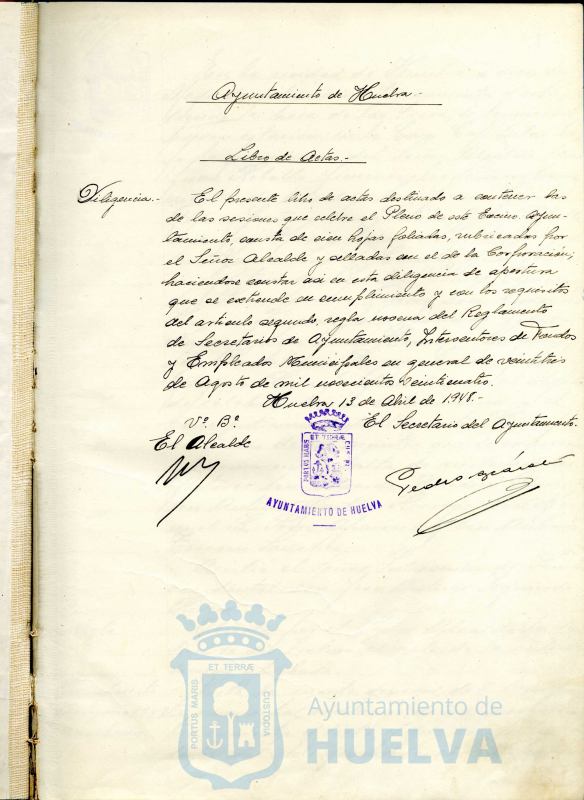 Ayuntamiento de Huelva.-
Libro de Actas.-
Diligencia.- El presente libro de actas destinado a contener las
de las sesiones que celebre el Pleno de este Excmo. Ayun-
tamiento, consta de cien hojas foliadas, rubricadas por
el Señor Alcalde y selladas con el de la Corporación;
haciendose constar asi en esta diligencia de apertura
que se extiende en cumplimiento y con los requisitos
del articulo segundo, regla novena del Reglamento
de Secretarios de Ayuntamiento, Interventores de Fondos
y Empleados Municipales en general de veintitres
de Agosto de mil novecientos veinticuatro.
Huelva 13 de Abril de 1948.-
Vº. Bº.
El Alcalde
El Secretario del Ayuntamiento.
PORTUS MARIS ET TERRÆ
AYUNTAMIENTO DE HUELVA
Pedro
PORTUS MARIS ET TERRÆ CUSTODIA
Ayuntamiento de
HUELVA